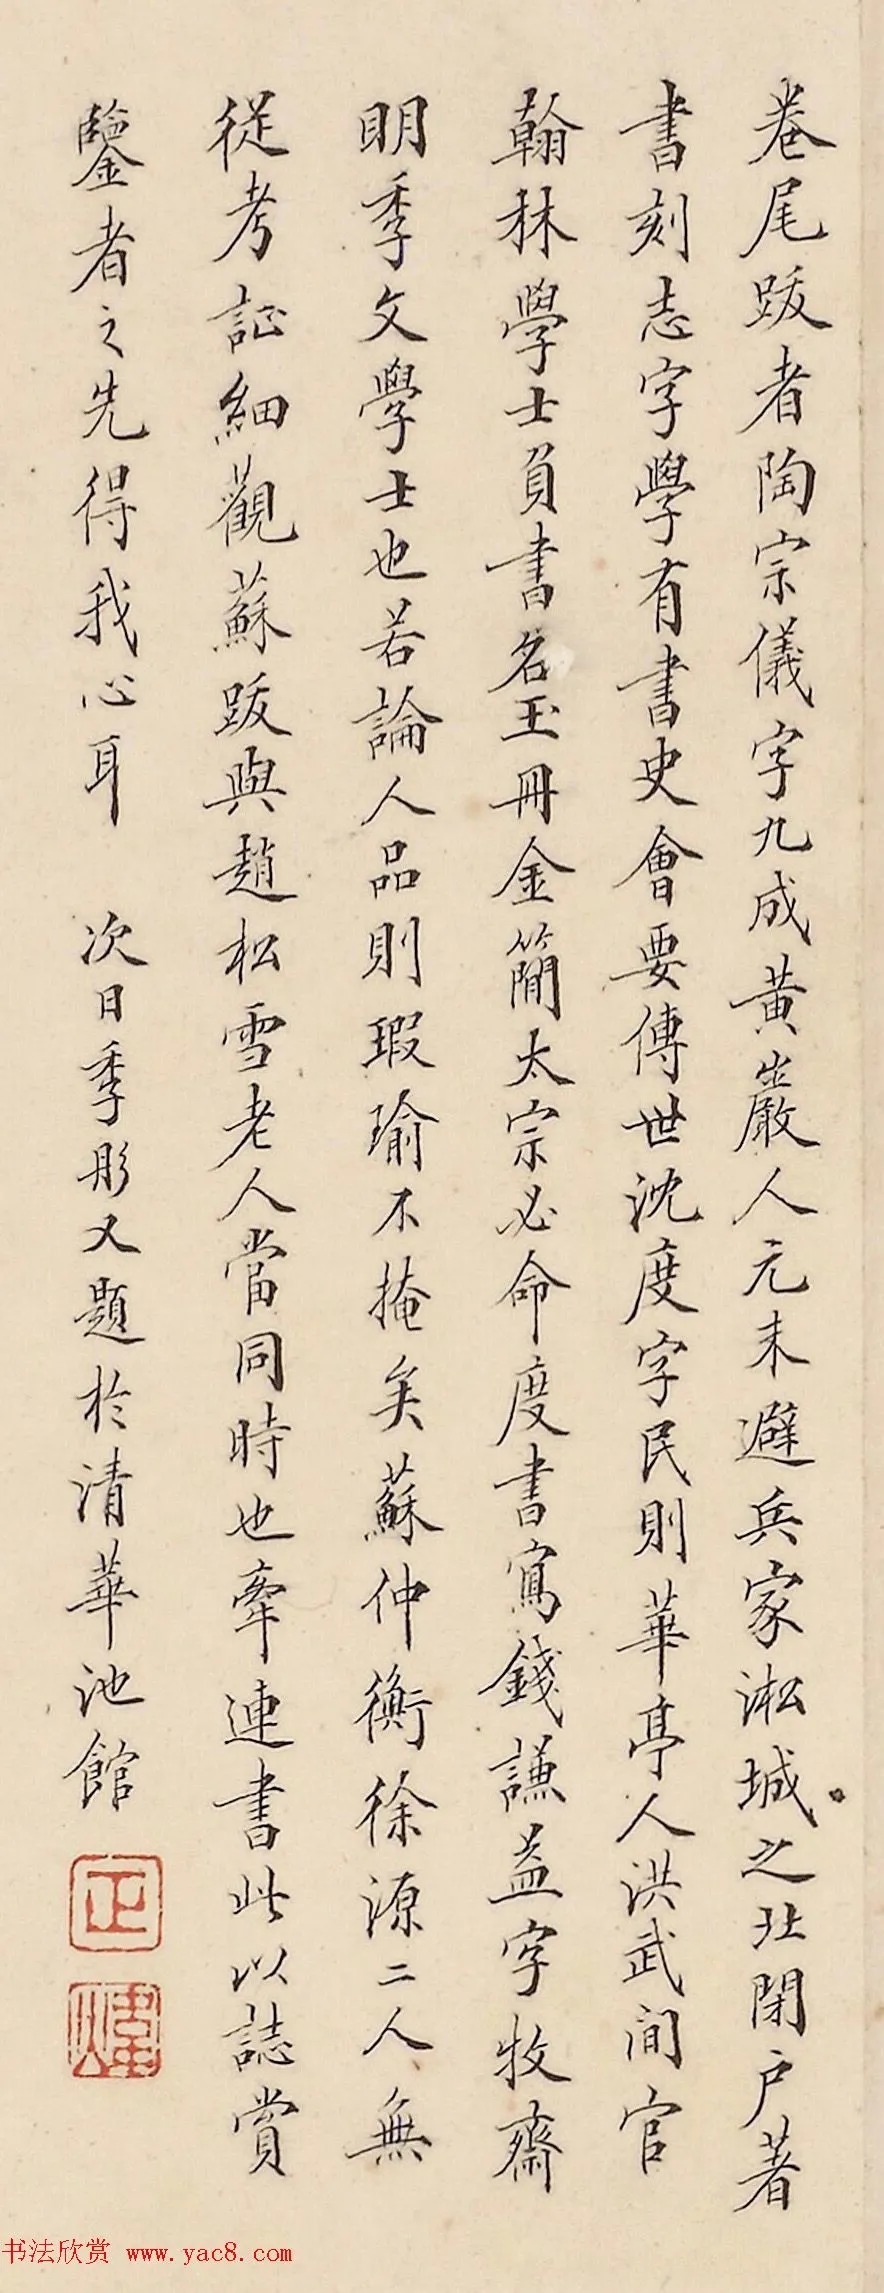 卷尾跋者陶宗儀字九成黃巖人元末避兵家淞城之北閉户著
書刻志字學有書史會要傳世沈度字民則華亭人洪武间官
翰林學士負書名玉冊金簡太宗必命度書寫錢謙益字牧齋
明季文學士也若論人品則瑕瑜不掩矣蘇仲衡徐源二人無
從考証細觀蘇跋與趙松雪老人當同時也牽連書此以誌賞
鑒者之先得我心耳 次日季彤又題於清華池館
正
煒
书法欣赏 www.yac8.com